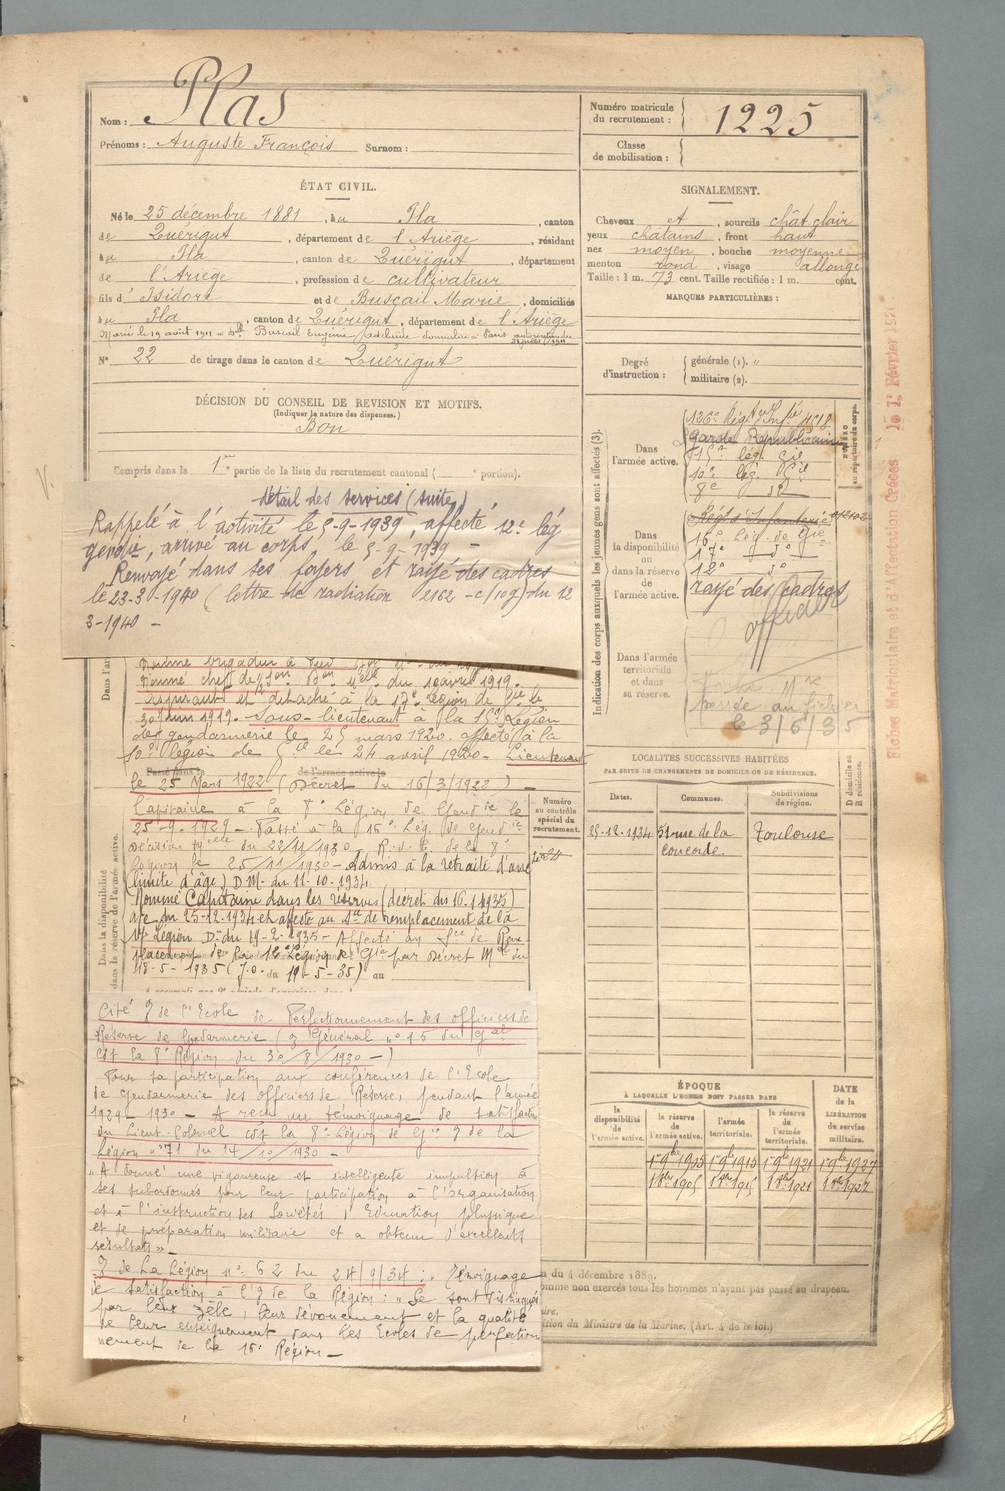 Nom : Plas
Prénoms : Auguste François Surnom :
Numéro matricule du recrutement : 1225
Classe de mobilisation :
ÉTAT CIVIL.
Né le 25 décembre 1881, à Pla, canton
de Quérigut, département de l'Ariège, résidant
à Pla, canton de Quérigut, département
de l'Ariège, profession de cultivateur
fils d' Isidore et de Buscail Marie, domiciliés
à Pla, canton de Quérigut, département de l'Ariège
Marié le 19 août 1911 à Dlle Buscail Eugénie Adélaïde domiciliée à Paris autorisation du
N° 22 de tirage dans le canton de Quérigut
SIGNALEMENT.
Cheveux et, sourcils chât clair
yeux châtains, front haut
nez moyen, bouche moyenne
menton rond, visage allongé
Taille : 1 m. 73 cent. Taille rectifiée : 1 m. cent.
MARQUES PARTICULIÈRES :
Degré d'instruction :
générale (1). "
militaire (2).
DÉCISION DU CONSEIL DE REVISION ET MOTIFS.
(Indiquer la nature des dispenses.)
Bon
Compris dans la 1re partie de la liste du recrutement cantonal ( portion).
détail des services (suite)
Rappelé à l'activité le 5-9-1939, affecté 12e lég
gendie, arrivé au corps le 5-9-1939 -
Renvoyé dans ses foyers et rayé des cadres
le 23-3-1940 (lettre de radiation 2162 -c/10g) du 12
3-1940 -
Nommé brigadier à pied
Nommé chef de 10 avril 1919.
Aspirant et détaché à la 17e Légion de Gie le
30 Juin 1919. Sous-lieutenant à la 15e Légion
de gendarmerie le 25 mars 1920. affecté à la
10e légion de Gie le 24 avril 1920. Lieutenant
Passé dans la de l'armée active le
le 25 Mars 1922 (Décret du 16/3/1922) -
Capitaine à la 8e Légion de Gendie le
25-9-1929 - Passé à la 15e Lég. de Gendie
Décision Mlle du 22/11/1930. R.d.C. de la 8e
Légion le 25/11/1930 - Admis à la retraite d'anc
(limite d'âge) D.M. du 11-10-1934
Nommé Capitaine dans les réserves (décret du 16.1.1935)
à/c du 25-12-1934 et affecté au Sce de remplacement de la
17e Légion Don du 19-2-1935 - Affecté au Sce de Rem
placement de la 12e Légion de Gie par Décret Mel du
18-5-1935 (J.O. du 19-5-35) au
Cité à l'Ecole de Perfectionnement des officiers de
Réserve de Gendarmerie Général n° 15 du Gal
Cdt la 8e Région du 30/8/1930 -)
Pour sa participation aux conférences de l'Ecole
de gendarmerie des officiers de Réserve, pendant l'année
1929-1930 - A reçu un témoignage de satisfaction
du Lieut-Colonel cdt la 8e Légion de Gie de la
Légion n° 71 du 14/10/1930 -
"A donné une vigoureuse et intelligente impulsion à
ses subordonnés pour leur participation à l'organisation
et à l'instruction des Sociétés d'Education physique
et de préparation militaire et a obtenu d'excellents
résultats" -
de La Légion n° 62 du 24/9/34 : Témoignage
de satisfaction à l' de la Région : "Se sont distingués
par leur zèle, leur dévouement et la qualité
de leur enseignement dans les Ecoles de perfection
nement de la 15e Région -
Indication des corps auxquels les jeunes gens sont affectés (3).
Dans l'armée active.
126e Régt d'Infie
Garde Républicaine
15e lég. Gie
10e lég. Gie
8e do
NUMÉRO au répertoire du corps.
Dans la disponibilité ou dans la réserve de l'armée active.
Régt d'Infanterie
15e Lég. de Gie
17e do
12e do
rayé des cadres
officier
Dans l'armée territoriale et dans sa réserve.
Fiche Mle
passée au fichier
le 3/6/35
Fiches Matriculaire et d'Affectation Créées le 1r Février 192
LOCALITÉS SUCCESSIVES HABITÉES
PAR SUITE DE CHANGEMENTS DE DOMICILE OU DE RÉSIDENCE.
Dates. Communes. Subdivisions de région. D domicile ou R résidence.
25-12-1934 51 rue de la Concorde. Toulouse
Numéro au contrôle spécial du recrutement.
Dans la disponibilité
dans la réserve de l'armée active.
ÉPOQUE
À LAQUELLE L'HOMME DOIT PASSER DANS
la disponibilité de l'armée active. la réserve de l'armée active. l'armée territoriale. la réserve de l'armée territoriale. DATE de la LIBÉRATION du service militaire.
1r 9bre 1905 1r 9bre 1915 1r 9bre 1921 1r 9bre 1927
1r 8bre 1905 1r 8bre 1915 1r 8bre 1921 1r 8bre 1927
n du 4 décembre 1889.
omme non exercés tous les hommes n'ayant pas passé au drapeau.
ire.
ation du Ministre de la Marine. (Art. 4 de la loi.)